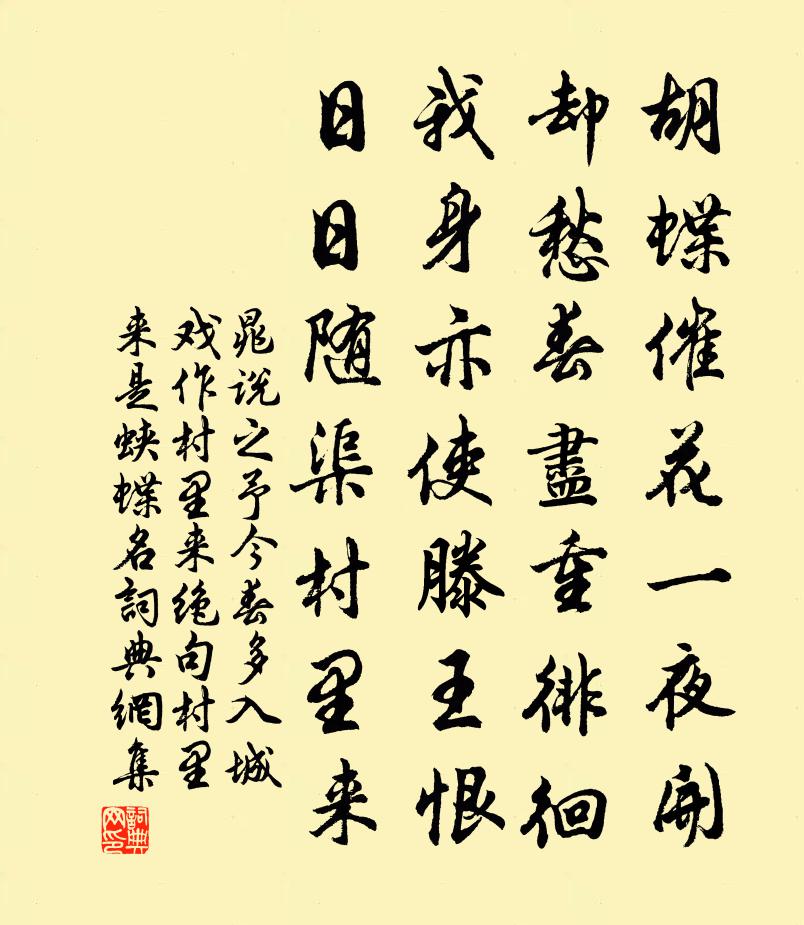 胡蝶催花一夜開
却愁春盡重徘徊
我身亦使滕王恨
日日随渠村里来
晁说之予今春多入城
戏作村里来绝句村里
来是蛱蝶名詞典網集
詞典
网印